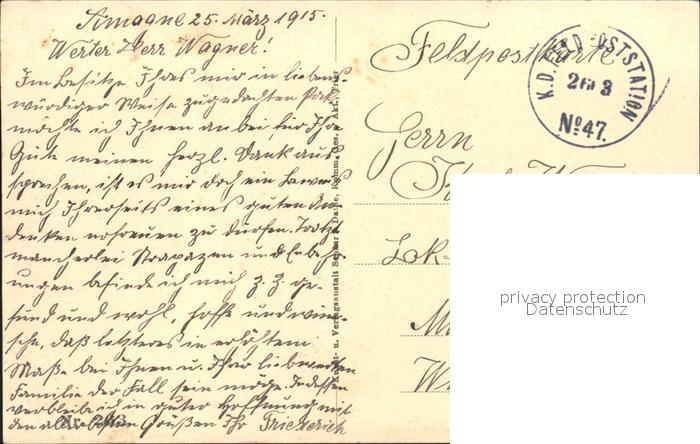 Amagne 25. März 1915.
Werter Herr Wagner!
Im Besitze Ihres mir in liebens-
würdiger Weise zugedachten
möchte ich Ihnen an bei für Ihre
Güte meinen herzl. Dank aus-
sprechen, ist es mir doch ein Beweis
mich Ihrerseits eines guten An-
denkens erfreuen zu dürfen. Trotz
mancherlei Strapazen und Entbehr-
ungen befinde ich mich z. Z. ge-
sund und wohl, hoffe und wün-
sche, daß letzteres in erhöhtem
Maße bei Ihnen u. Ihrer liebwerten
Familie der Fall sein möge. Indessen
verbleibe ich in guter Hoffnung mit
den allerbesten Grüßen Ihr Friederich
Feldpostkarte.
K.D. FELDPOSTSTATION
No 47.
Herrn
Lok-
privacy protection
Datenschutz